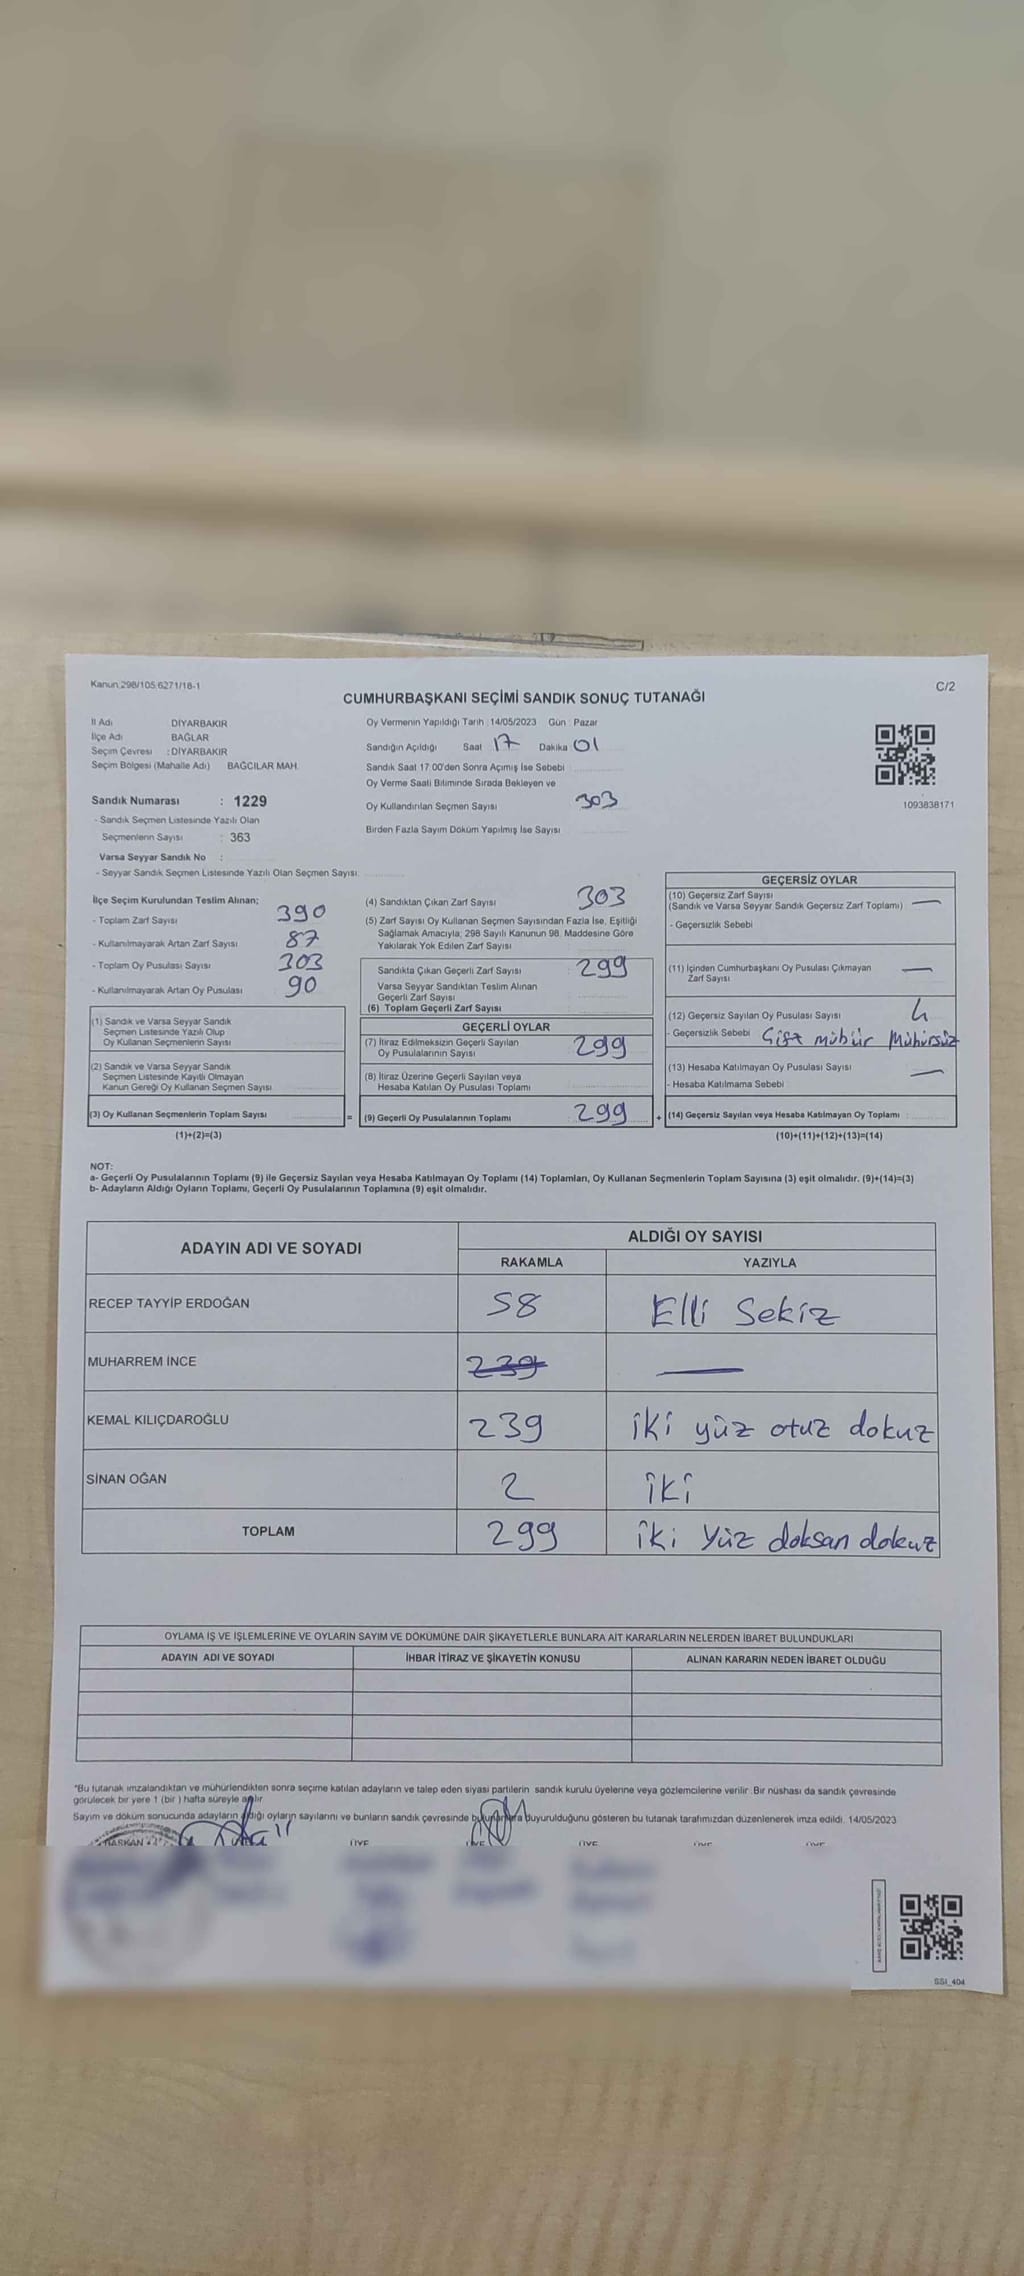 Kanun:298/105,6271/18-1
C/2
CUMHURBAŞKANI SEÇİMİ SANDIK SONUÇ TUTANAĞI
İl Adı DİYARBAKIR
İlçe Adı BAĞLAR
Seçim Çevresi : DİYARBAKIR
Seçim Bölgesi (Mahalle Adı) BAĞCILAR MAH.
Sandık Numarası : 1229
- Sandık Seçmen Listesinde Yazılı Olan
Seçmenlerin Sayısı : 363
Varsa Seyyar Sandık No :
- Seyyar Sandık Seçmen Listesinde Yazılı Olan Seçmen Sayısı:
Oy Vermenin Yapıldığı Tarih : 14/05/2023 Gün : Pazar
Sandığın Açıldığı Saat 17 Dakika 01
Sandık Saat 17:00'den Sonra Açımış İse Sebebi
Oy Verme Saati Bitiminde Sırada Bekleyen ve
Oy Kullandırılan Seçmen Sayısı 303
Birden Fazla Sayım Döküm Yapılmış İse Sayısı
1093838171
İlçe Seçim Kurulundan Teslim Alınan;
- Toplam Zarf Sayısı 390
- Kullanılmayarak Artan Zarf Sayısı 87
- Toplam Oy Pusulası Sayısı 303
- Kullanılmayarak Artan Oy Pusulası 90
(1) Sandık ve Varsa Seyyar Sandık
Seçmen Listesinde Yazılı Olup
Oy Kullanan Seçmenlerin Sayısı
(2) Sandık ve Varsa Seyyar Sandık
Seçmen Listesinde Kayıtlı Olmayan
Kanun Gereği Oy Kullanan Seçmen Sayısı
(3) Oy Kullanan Seçmenlerin Toplam Sayısı
(1)+(2)=(3)
=
(4) Sandıktan Çıkan Zarf Sayısı 303
(5) Zarf Sayısı Oy Kullanan Seçmen Sayısından Fazla İse, Eşitliği
Sağlamak Amacıyla; 298 Sayılı Kanunun 98. Maddesine Göre
Yakılarak Yok Edilen Zarf Sayısı
Sandıkta Çıkan Geçerli Zarf Sayısı 299
Varsa Seyyar Sandıktan Teslim Alınan
Geçerli Zarf Sayısı
(6) Toplam Geçerli Zarf Sayısı
GEÇERLİ OYLAR
(7) İtiraz Edilmeksizin Geçerli Sayılan
Oy Pusulalarının Sayısı 299
(8) İtiraz Üzerine Geçerli Sayılan veya
Hesaba Katılan Oy Pusulası Toplamı
(9) Geçerli Oy Pusulalarının Toplamı 299
+
GEÇERSİZ OYLAR
(10) Geçersiz Zarf Sayısı
(Sandık ve Varsa Seyyar Sandık Geçersiz Zarf Toplamı) —
- Geçersizlik Sebebi
(11) İçinden Cumhurbaşkanı Oy Pusulası Çıkmayan
Zarf Sayısı —
(12) Geçersiz Sayılan Oy Pusulası Sayısı 4
- Geçersizlik Sebebi Çift mühür Mühürsüz
(13) Hesaba Katılmayan Oy Pusulası Sayısı —
- Hesaba Katılmama Sebebi
(14) Geçersiz Sayılan veya Hesaba Katılmayan Oy Toplamı :
(10)+(11)+(12)+(13)=(14)
NOT:
a- Geçerli Oy Pusulalarının Toplamı (9) ile Geçersiz Sayılan veya Hesaba Katılmayan Oy Toplamı (14) Toplamları, Oy Kullanan Seçmenlerin Toplam Sayısına (3) eşit olmalıdır. (9)+(14)=(3)
b- Adayların Aldığı Oyların Toplamı, Geçerli Oy Pusulalarının Toplamına (9) eşit olmalıdır.
ADAYIN ADI VE SOYADI
ALDIĞI OY SAYISI
RAKAMLA YAZIYLA
RECEP TAYYİP ERDOĞAN 58 Elli Sekiz
MUHARREM İNCE 239 —
KEMAL KILIÇDAROĞLU 239 iki yüz otuz dokuz
SİNAN OĞAN 2 iki
TOPLAM 299 iki yüz doksan dokuz
OYLAMA İŞ VE İŞLEMLERİNE VE OYLARIN SAYIM VE DÖKÜMÜNE DAİR ŞİKAYETLERLE BUNLARA AİT KARARLARIN NELERDEN İBARET BULUNDUKLARI
ADAYIN ADI VE SOYADI İHBAR İTİRAZ VE ŞİKAYETİN KONUSU ALINAN KARARIN NEDEN İBARET OLDUĞU
*Bu tutanak imzalandıktan ve mühürlendikten sonra seçime katılan adayların ve talep eden siyasi partilerin sandık kurulu üyelerine veya gözlemcilerine verilir. Bir nüshası da sandık çevresinde
görülecek bir yere 1 (bir) hafta süreyle asılır
Sayım ve döküm sonucunda adayların aldığı oyların sayılarını ve bunların sandık çevresinde bulunanlara duyurulduğunu gösteren bu tutanak tarafımızdan düzenlenerek imza edildi. 14/05/2023
BAŞKAN ÜYE ÜYE ÜYE ÜYE ÜYE
SSI_404